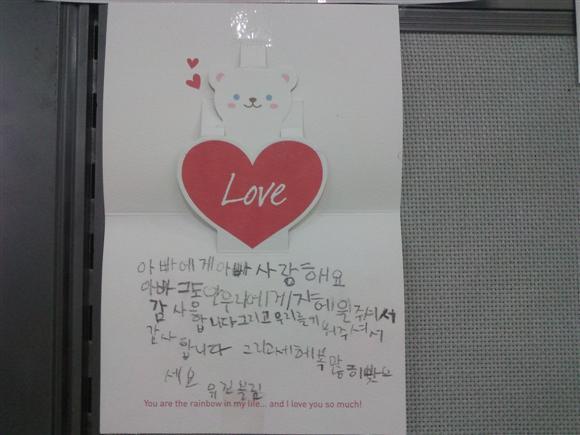 Love
아바에게아빠사랑해요
아바 그도안우리에게자에 주셔서
감사 합니다그리고우리를키 워주셔서
감사 합니다 그리고세해 복많히밧으
세요 유진
You are the rainbow in my life... and I love you so much!